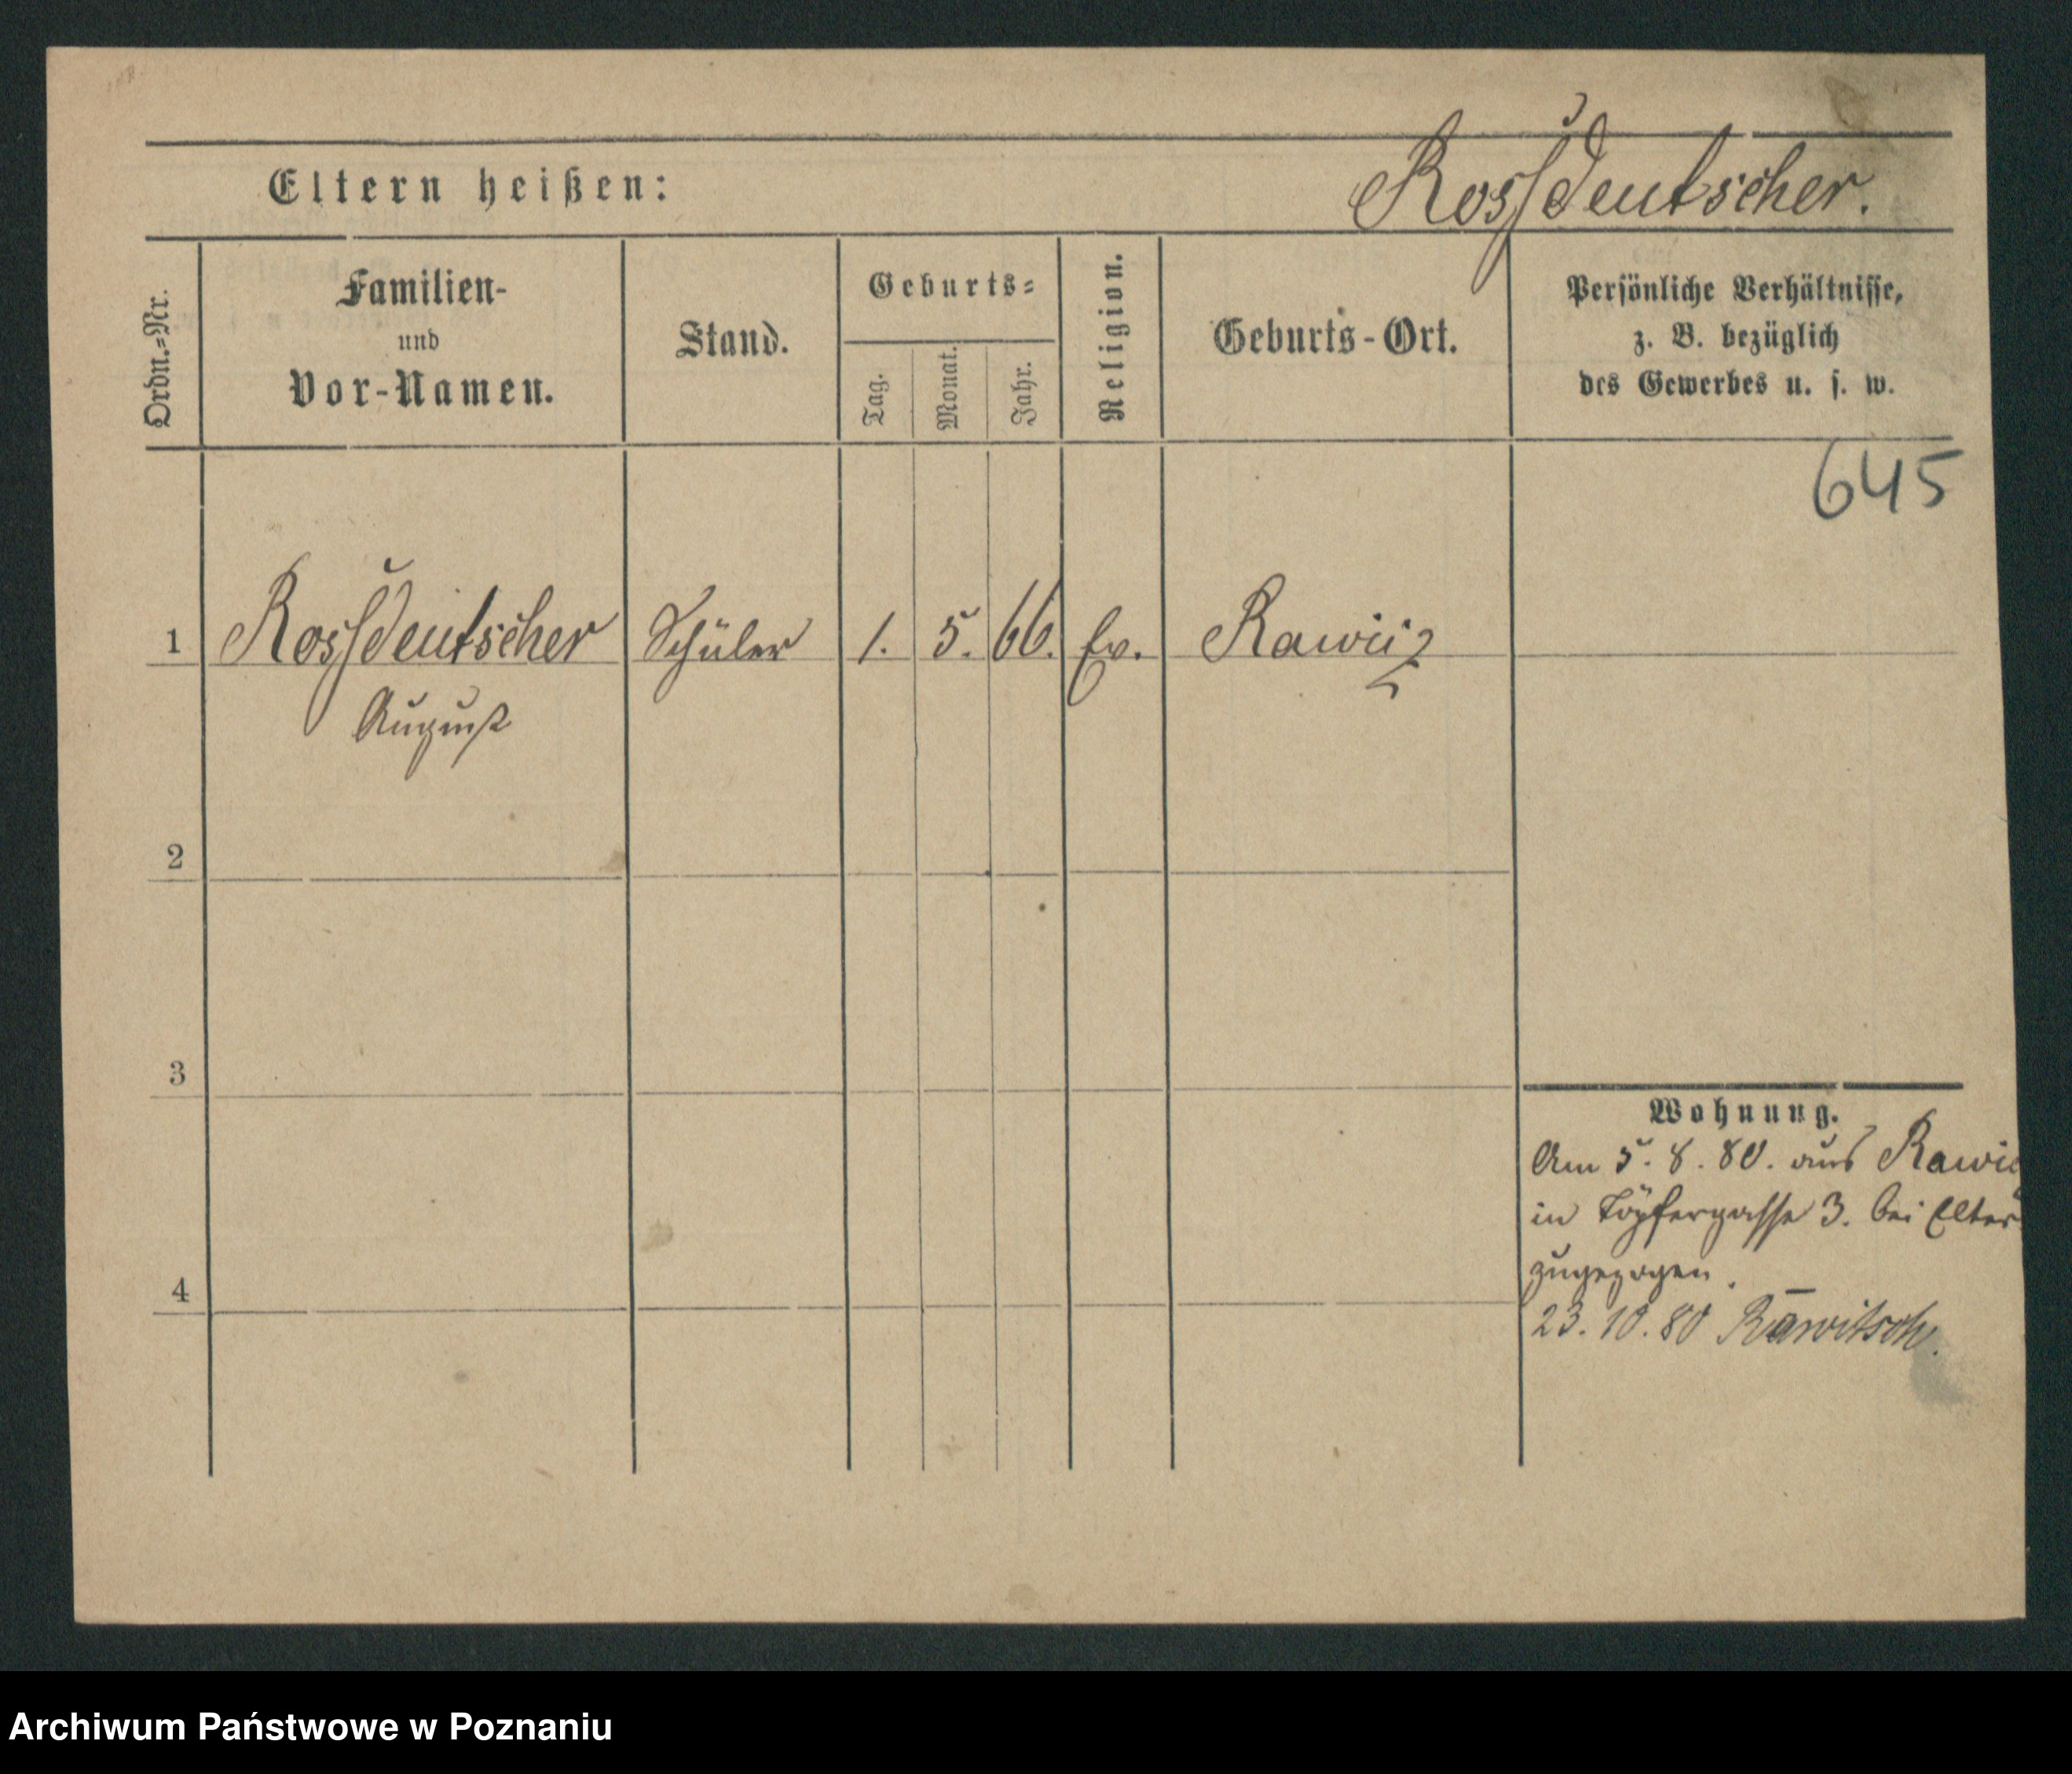 Rossdeutscher.
Eltern heißen:
Ordn.-Nr.
Familien-
und
Vor-Namen.
Stand.
Geburts-
Tag.
Monat.
Jahr.
Religion.
Geburts-Ort.
Persönliche Verhältnisse,
z. B. bezüglich
des Gewerbes u. s. w.
645
1 Rossdeutscher Schüler 1. 5. 66. Ev. Rawicz
August
2
3
4
Wohnung.
Am 5. 8. 80. aus Rawic
in Töpfergasse 3. bei Elter
zugezogen.
23. 10. 80 Rawitsch.
Archiwum Państwowe w Poznaniu